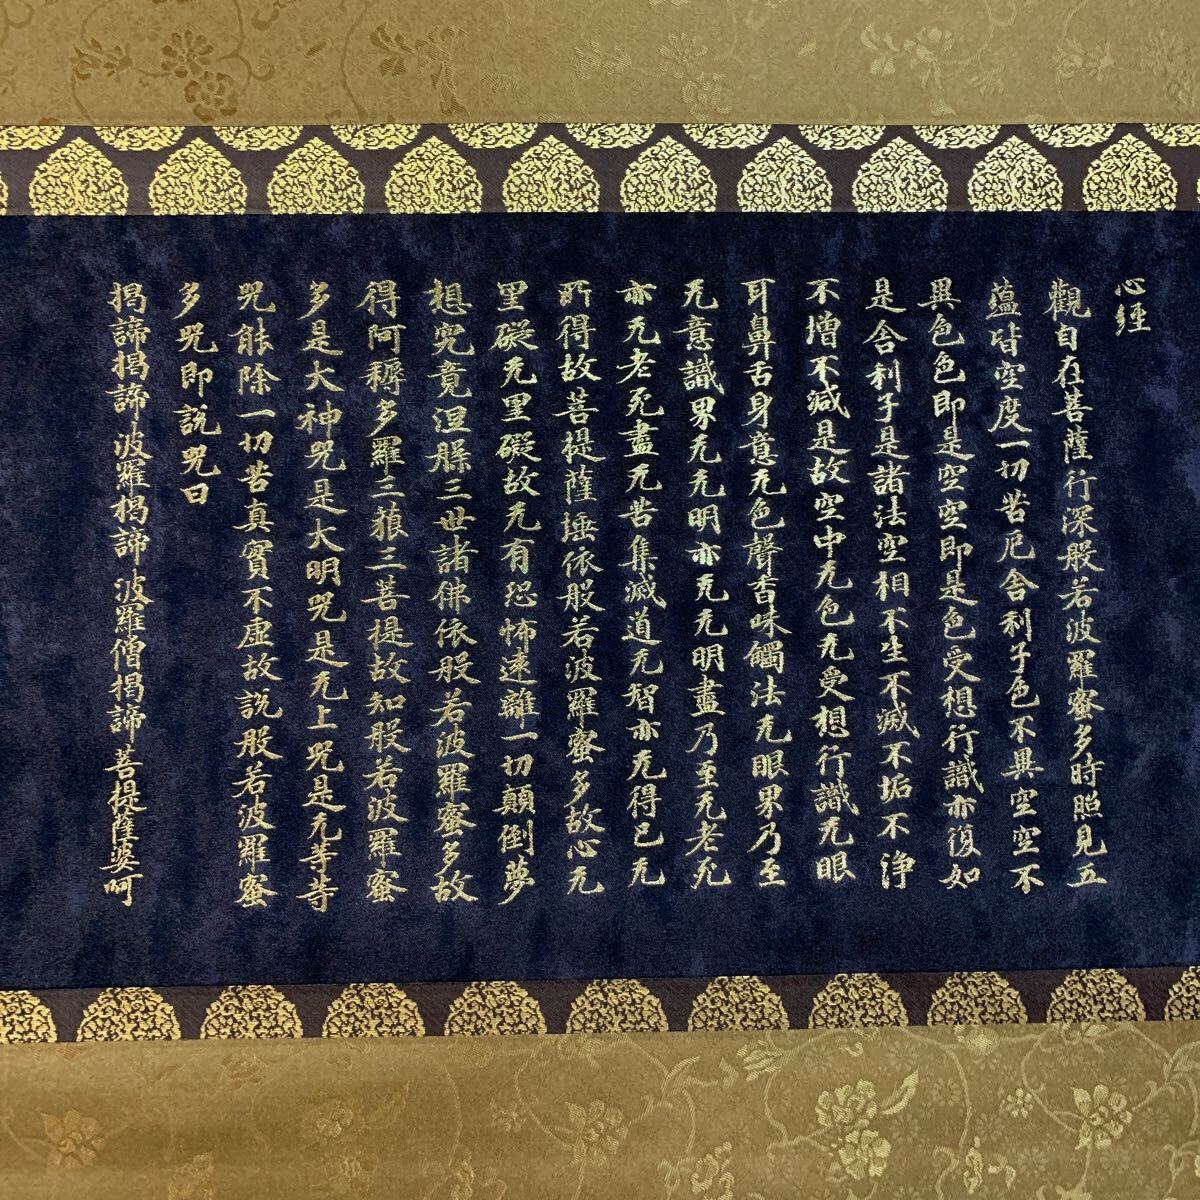 心経
觀自在菩薩行深般若波羅蜜多時照見五
蘊皆空度一切苦厄舎利子色不異空空不
異色色即是空空即是色受想行識亦復如
是舎利子是諸法空相不生不滅不垢不浄
不増不減是故空中无色无受想行識无眼
耳鼻舌身意无色聲香味觸法无眼界乃至
无意識界无无明亦无无明盡乃至无老死
亦无老死盡无苦集滅道无智亦无得已无
所得故菩提薩埵依般若波羅蜜多故心无
罣礙无罣礙故无有恐怖遠離一切顛倒夢
想究竟涅槃三世諸佛依般若波羅蜜多故
得阿耨多羅三藐三菩提故知般若波羅蜜
多是大神呪是大明呪是无上呪是无等等
呪能除一切苦真實不虚故説般若波羅蜜
多呪即説呪曰
掲諦掲諦波羅掲諦波羅僧掲諦菩提薩婆呵